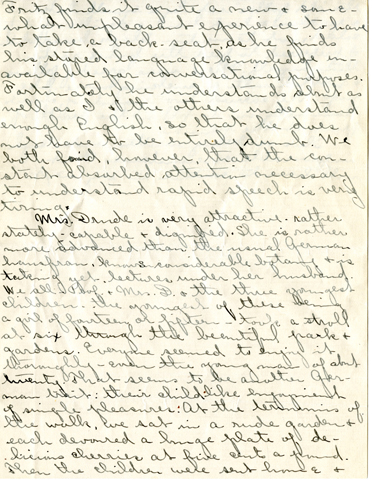 Fritz finds it quite a new & some-
what unpleasant experience to have
to take a back seat, as he finds
his stored language knowledge un-
available for conversational purposes.
Fortunately he understands about as
well as I & the others understand
enough English, so that he does
not have to be entirely dumb. We
both find, however, that the con-
stant absorbed attention necessary
to understand rapid speech is very
tiring.
Mrs. Drude is very attractive, rather
stately, capable & dignified. She is rather
more advanced than the usual German
hausfrau, knows considerable botany & is
taking lectures under her husband.
We all, Prof. & Mrs. D. & the three youngest
children - the youngest of these being
a girl of fourteen or fifteen - took a stroll
at six through the beautiful park &
gardens. Everyone seemed to enjoy it
thoroughly - even the young man of about
twenty. What seems to be another Ger-
man trait: their childlike enjoyment
of simple pleasures. At the terminus of
the walk, we sat in a rude garden &
each devoured a huge plate of de-
licious cherries at five cents a pound.
Then the children were sent home &